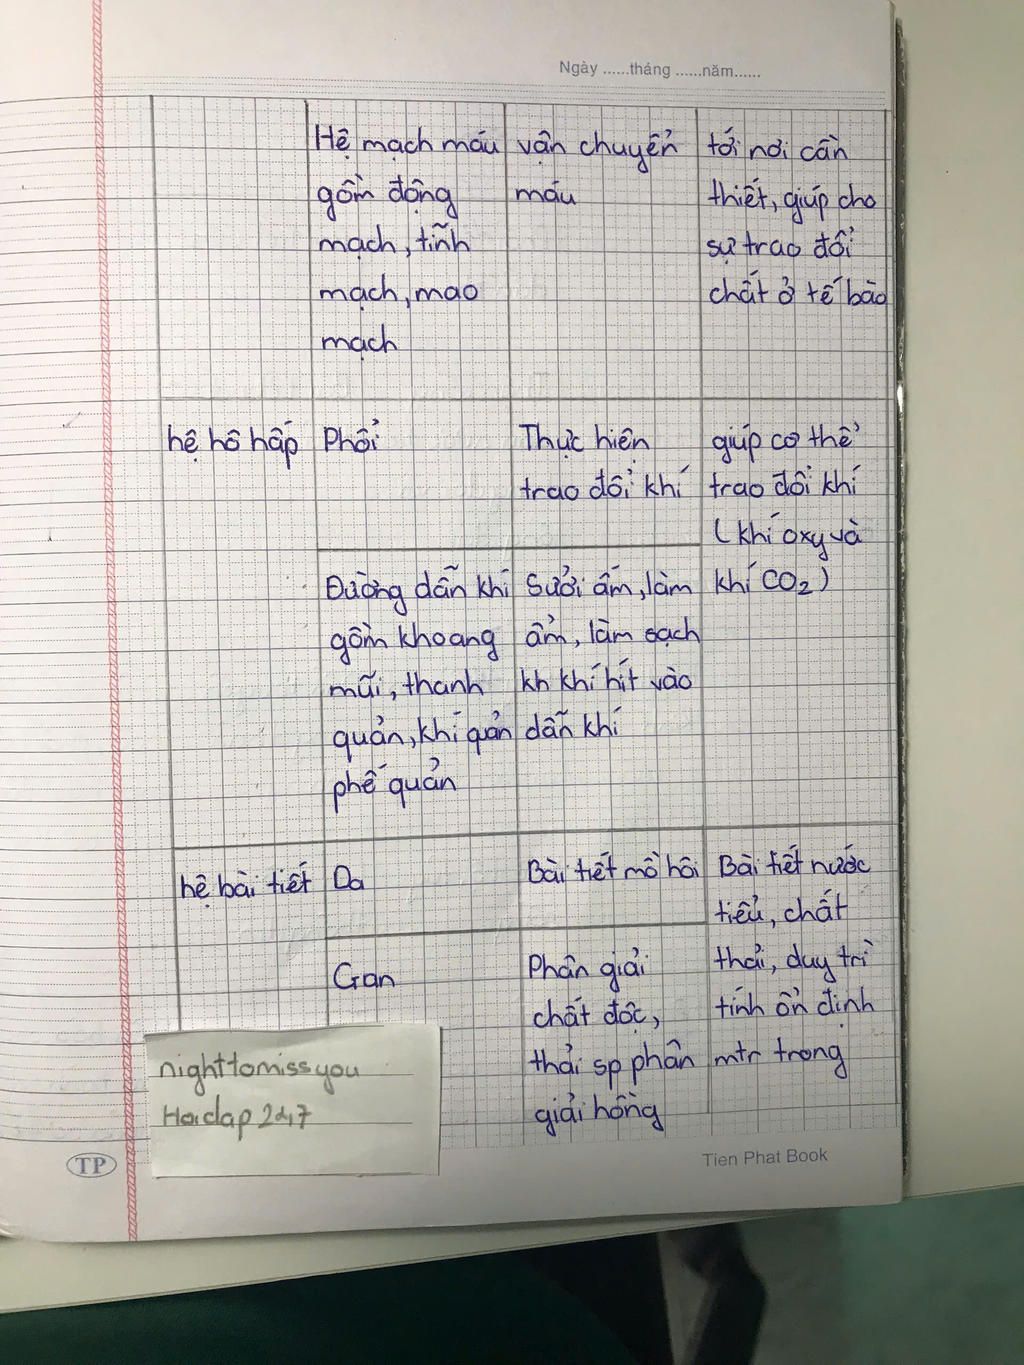 Ngày ......tháng ......năm......
Hệ mạch máu
gồm động
mạch, tĩnh
mạch, mao
mạch
vận chuyển
máu
tới nơi cần
thiết, giúp cho
sự trao đổi
chất ở tế bào
hệ hô hấp
Phổi
Thực hiện
trao đổi khí
giúp cơ thể
trao đổi khí
(khí oxy và
khí CO2)
Đường dẫn khí
gồm khoang
mũi, thanh
quản, khí quản
phế quản
Sưởi ấm, làm
ẩm, làm sạch
kh khí hít vào
dẫn khí
hệ bài tiết
Da
Bài tiết mồ hôi
Bài tiết nước
tiểu, chất
thải, duy trì
tính ổn định
mtr trong
Gan
Phân giải
chất độc,
thải sp phân
giải hồng
nighttomissyou
Hoidap247
TP
Tien Phat Book